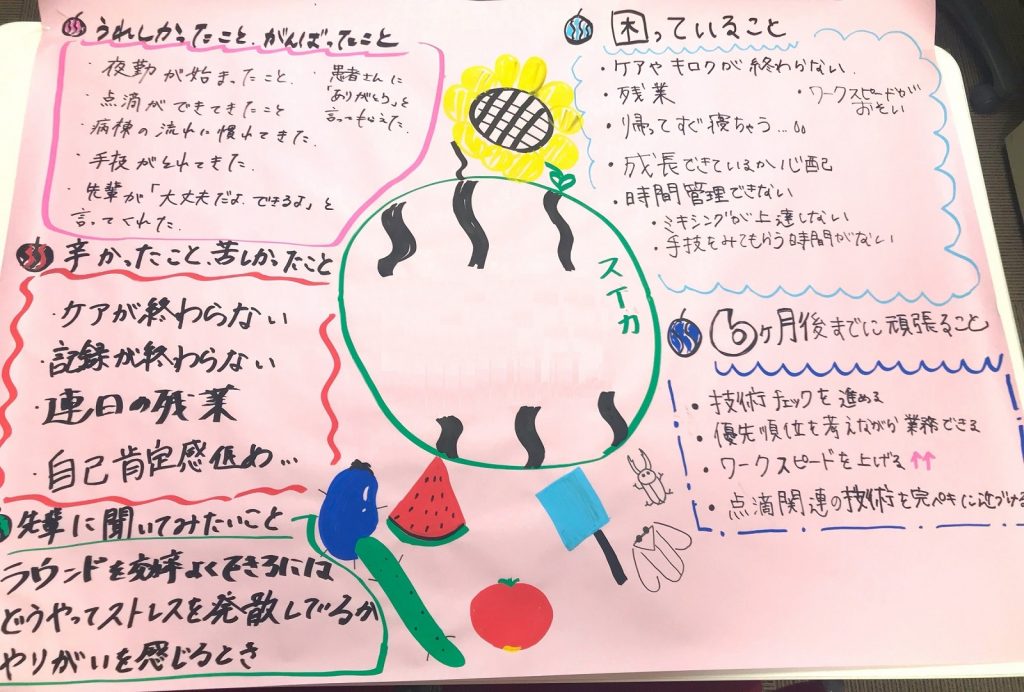 うれしかったこと、がんばったこと
・夜勤が始まったこと、
・点滴ができてきたこと
・病棟の流れに慣れてきた、
・手技がとれてきた
・先輩が「大丈夫だよ、できるよ」と
言ってくれた、
・患者さんに
「ありがとう」を
言ってもらえた、
辛かったこと、苦しかったこと
・ケアが終わらない
・記録が終わらない
・連日の残業
・自己肯定感低め…
先輩に聞いてみたいこと
ラウンドを効率よくできるには
どうやってストレスを発散しているか
やりがいを感じるとき
スイカ
困っていること
・ケアやキロクが終わらない、
・残業
・ワークスピードが
おそい
・帰ってすぐ寝ちゃう…。。
・成長できているか心配
・時間管理できない
・ミキシングが上達しない
・手技をみてもらう時間がない
6ヶ月後までに頑張ること
・技術チェックを進める
・優先順位を考えながら業務できる
・ワークスピードを上げる↑↑
・点滴関連の技術を完ペキに近づける